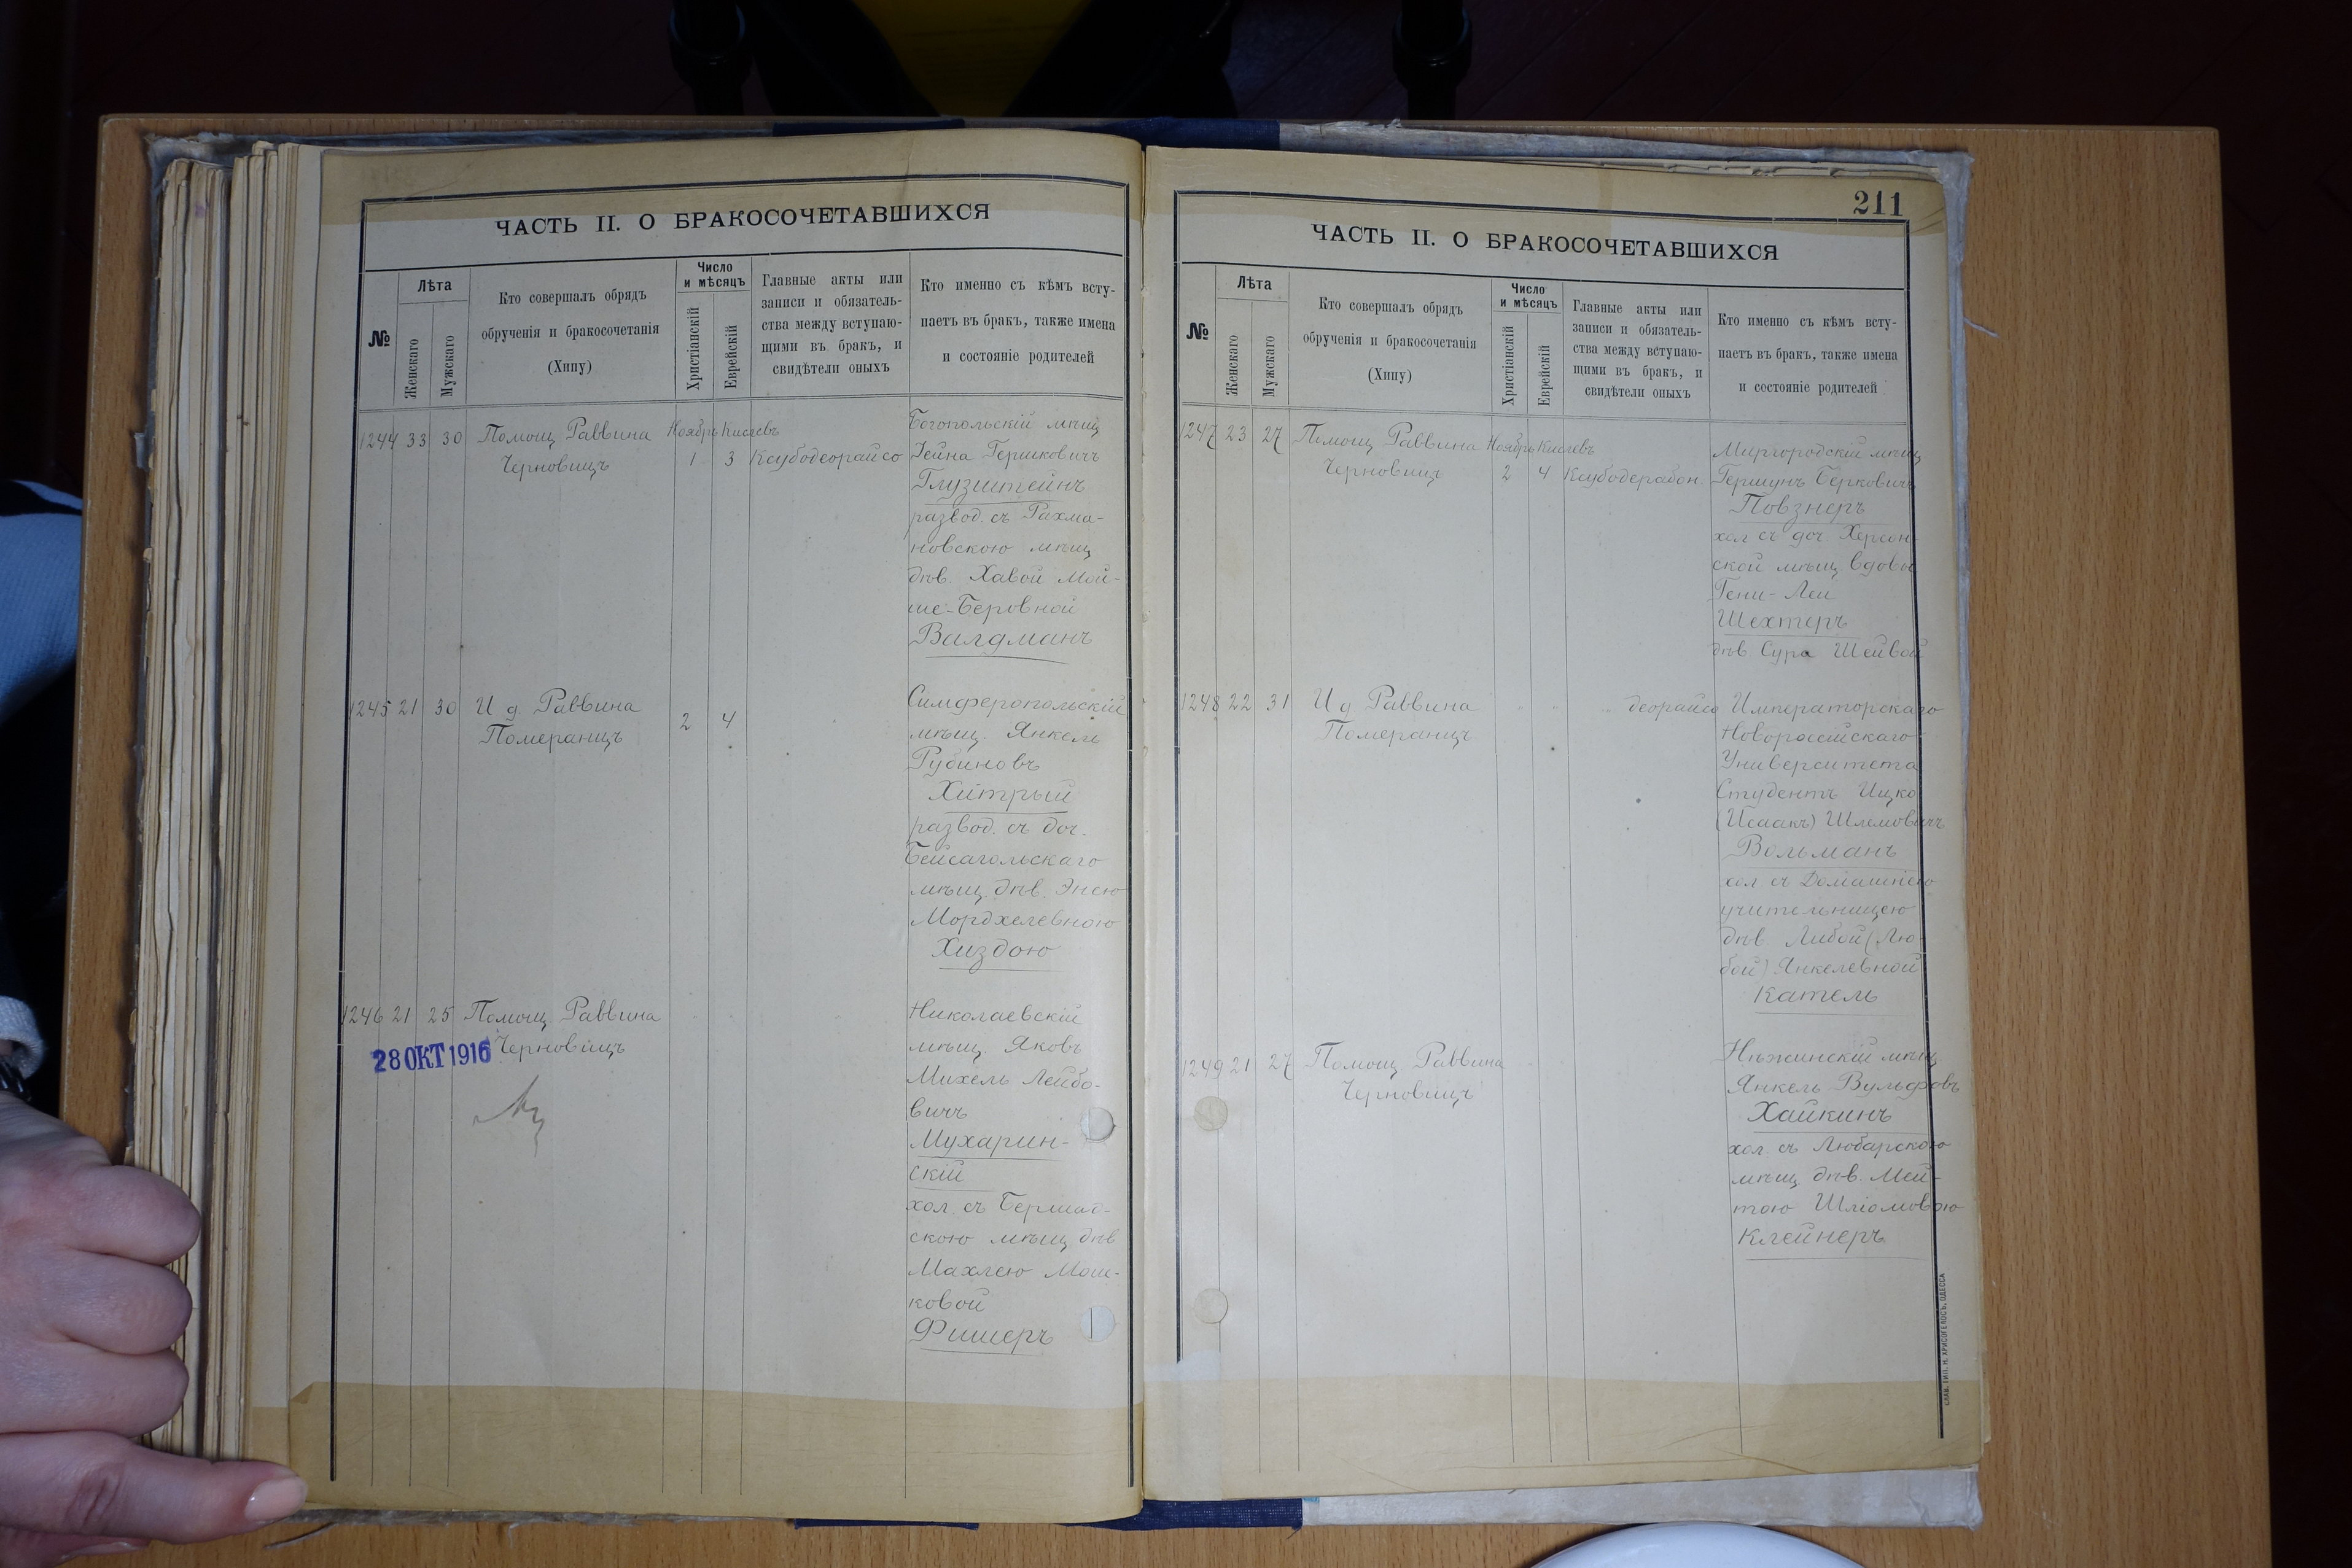 ЧАСТЬ II. О БРАКОСОЧЕТАВШИХСЯ
№
Лѣта
Женскаго
Мужскаго
Кто совершалъ обрядъ
обрученія и бракосочетанія
(Хипу)
Число
и мѣсяцъ
Христіанскій
Еврейскій
Главные акты или
записи и обязатель-
ства между вступаю-
щими въ бракъ, и
свидѣтели оныхъ
Кто именно съ кѣмъ всту-
паетъ въ бракъ, также имена
и состояніе родителей
1244 33 30 Помощ Раввина
Черновицъ
Ноябрь Кислевъ
1 3 Ксубодеорайсо
Богопольскій мѣщ
Гершковичъ
Глузштейнъ
развод. съ Рахма-
новскою мѣщ
дѣв. Хавой Мой-
ше-Беровной
Валдманъ
1245 21 30 И д. Раввина
Померанцъ
2 4
Симферопольскій
мѣщ. Янкель
Рубиновъ
Хитрый
развод. съ доч.
Бейсагольскаго
мѣщ. дѣв. Энею
Мордхелевною
Хиздою
1246 21 25 Помощ Раввина
Черновицъ
28 ОКТ 1916
Николаевскій
мѣщ. Яковъ
Михель Лейбо-
вичъ
Мухарин-
скій
хол. съ Бершад-
скою мѣщ дѣв
Махлею Мош-
ковой
Фишеръ
211
ЧАСТЬ II. О БРАКОСОЧЕТАВШИХСЯ
№
Лѣта
Женскаго
Мужскаго
Кто совершалъ обрядъ
обрученія и бракосочетанія
(Хипу)
Число
и мѣсяцъ
Христіанскій
Еврейскій
Главные акты или
записи и обязатель-
ства между вступаю-
щими въ бракъ, и
свидѣтели оныхъ
Кто именно съ кѣмъ всту-
паетъ въ бракъ, также имена
и состояніе родителей
1247 23 27 Помощ Раввина
Черновицъ
Ноябрь Кислевъ
2 4 Ксубодерабон.
Миргородскій мѣщ
Гершунъ Берковичъ
Повзнеръ
хол съ доч Херсон-
ской мѣщ. вдовы
Гени-Леи
Шехтеръ
дѣв Сура Шейвой
1248 22 31 И д Раввина
Померанцъ
" " " деорайсо
Императорскаго
Новороссійскаго
Университета
Студентъ Ицко
(Исаакъ) Шлемовичъ
Вольманъ
хол съ Домашнею
учительницею
дѣв Либой (Лю-
бой) Янкелевной
Катель
1249 21 27 Помощ Раввина
Черновицъ
Нѣжинскій мѣщ
Янкель Вульфовъ
Хайкинъ
хол. съ Любарскою
мѣщ дѣв. Мей-
тою Шліомовою
Клейнеръ
СЛАВ. ТИП. Н. ХРИСОГЕЛОСЪ, ОДЕССА